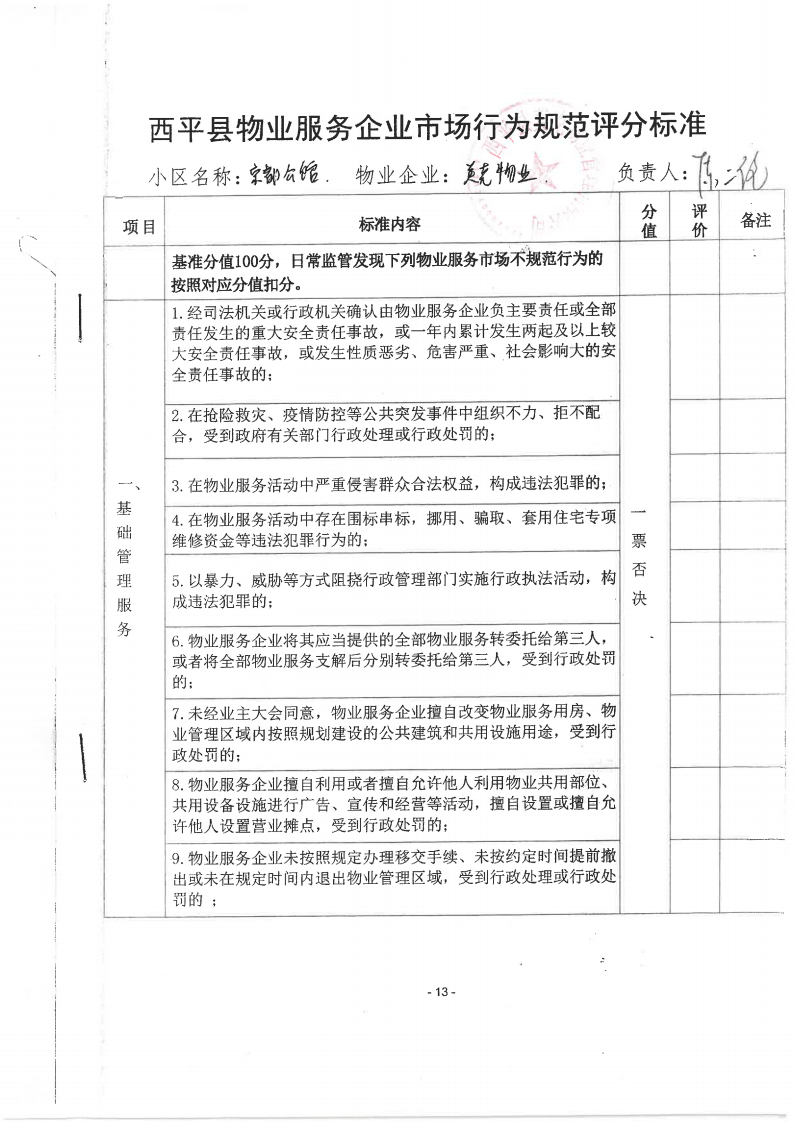 西平县物业服务企业市场行为规范评分标准
小区名称：宋都公馆. 物业企业：英克物业. 负责人：陈二纯
项目 标准内容 分值 评价 备注
基准分值100分，日常监管发现下列物业服务市场不规范行为的
按照对应分值扣分。
一、基础管理服务
1.经司法机关或行政机关确认由物业服务企业负主要责任或全部
责任发生的重大安全责任事故，或一年内累计发生两起及以上较
大安全责任事故，或发生性质恶劣、危害严重、社会影响大的安
全责任事故的；
2.在抢险救灾、疫情防控等公共突发事件中组织不力、拒不配
合，受到政府有关部门行政处理或行政处罚的；
3.在物业服务活动中严重侵害群众合法权益，构成违法犯罪的；
4.在物业服务活动中存在围标串标，挪用、骗取、套用住宅专项
维修资金等违法犯罪行为的；
5.以暴力、威胁等方式阻挠行政管理部门实施行政执法活动，构
成违法犯罪的；
6.物业服务企业将其应当提供的全部物业服务转委托给第三人，
或者将全部物业服务支解后分别转委托给第三人，受到行政处罚
的；
7.未经业主大会同意，物业服务企业擅自改变物业服务用房、物
业管理区域内按照规划建设的公共建筑和共用设施用途，受到行
政处罚的；
8.物业服务企业擅自利用或者擅自允许他人利用物业共用部位、
共用设备设施进行广告、宣传和经营等活动，擅自设置或擅自允
许他人设置营业摊点，受到行政处罚的；
9.物业服务企业未按照规定办理移交手续、未按约定时间提前撤
出或未在规定时间内退出物业管理区域，受到行政处理或行政处
罚的 ；
一票否决
- 13 -